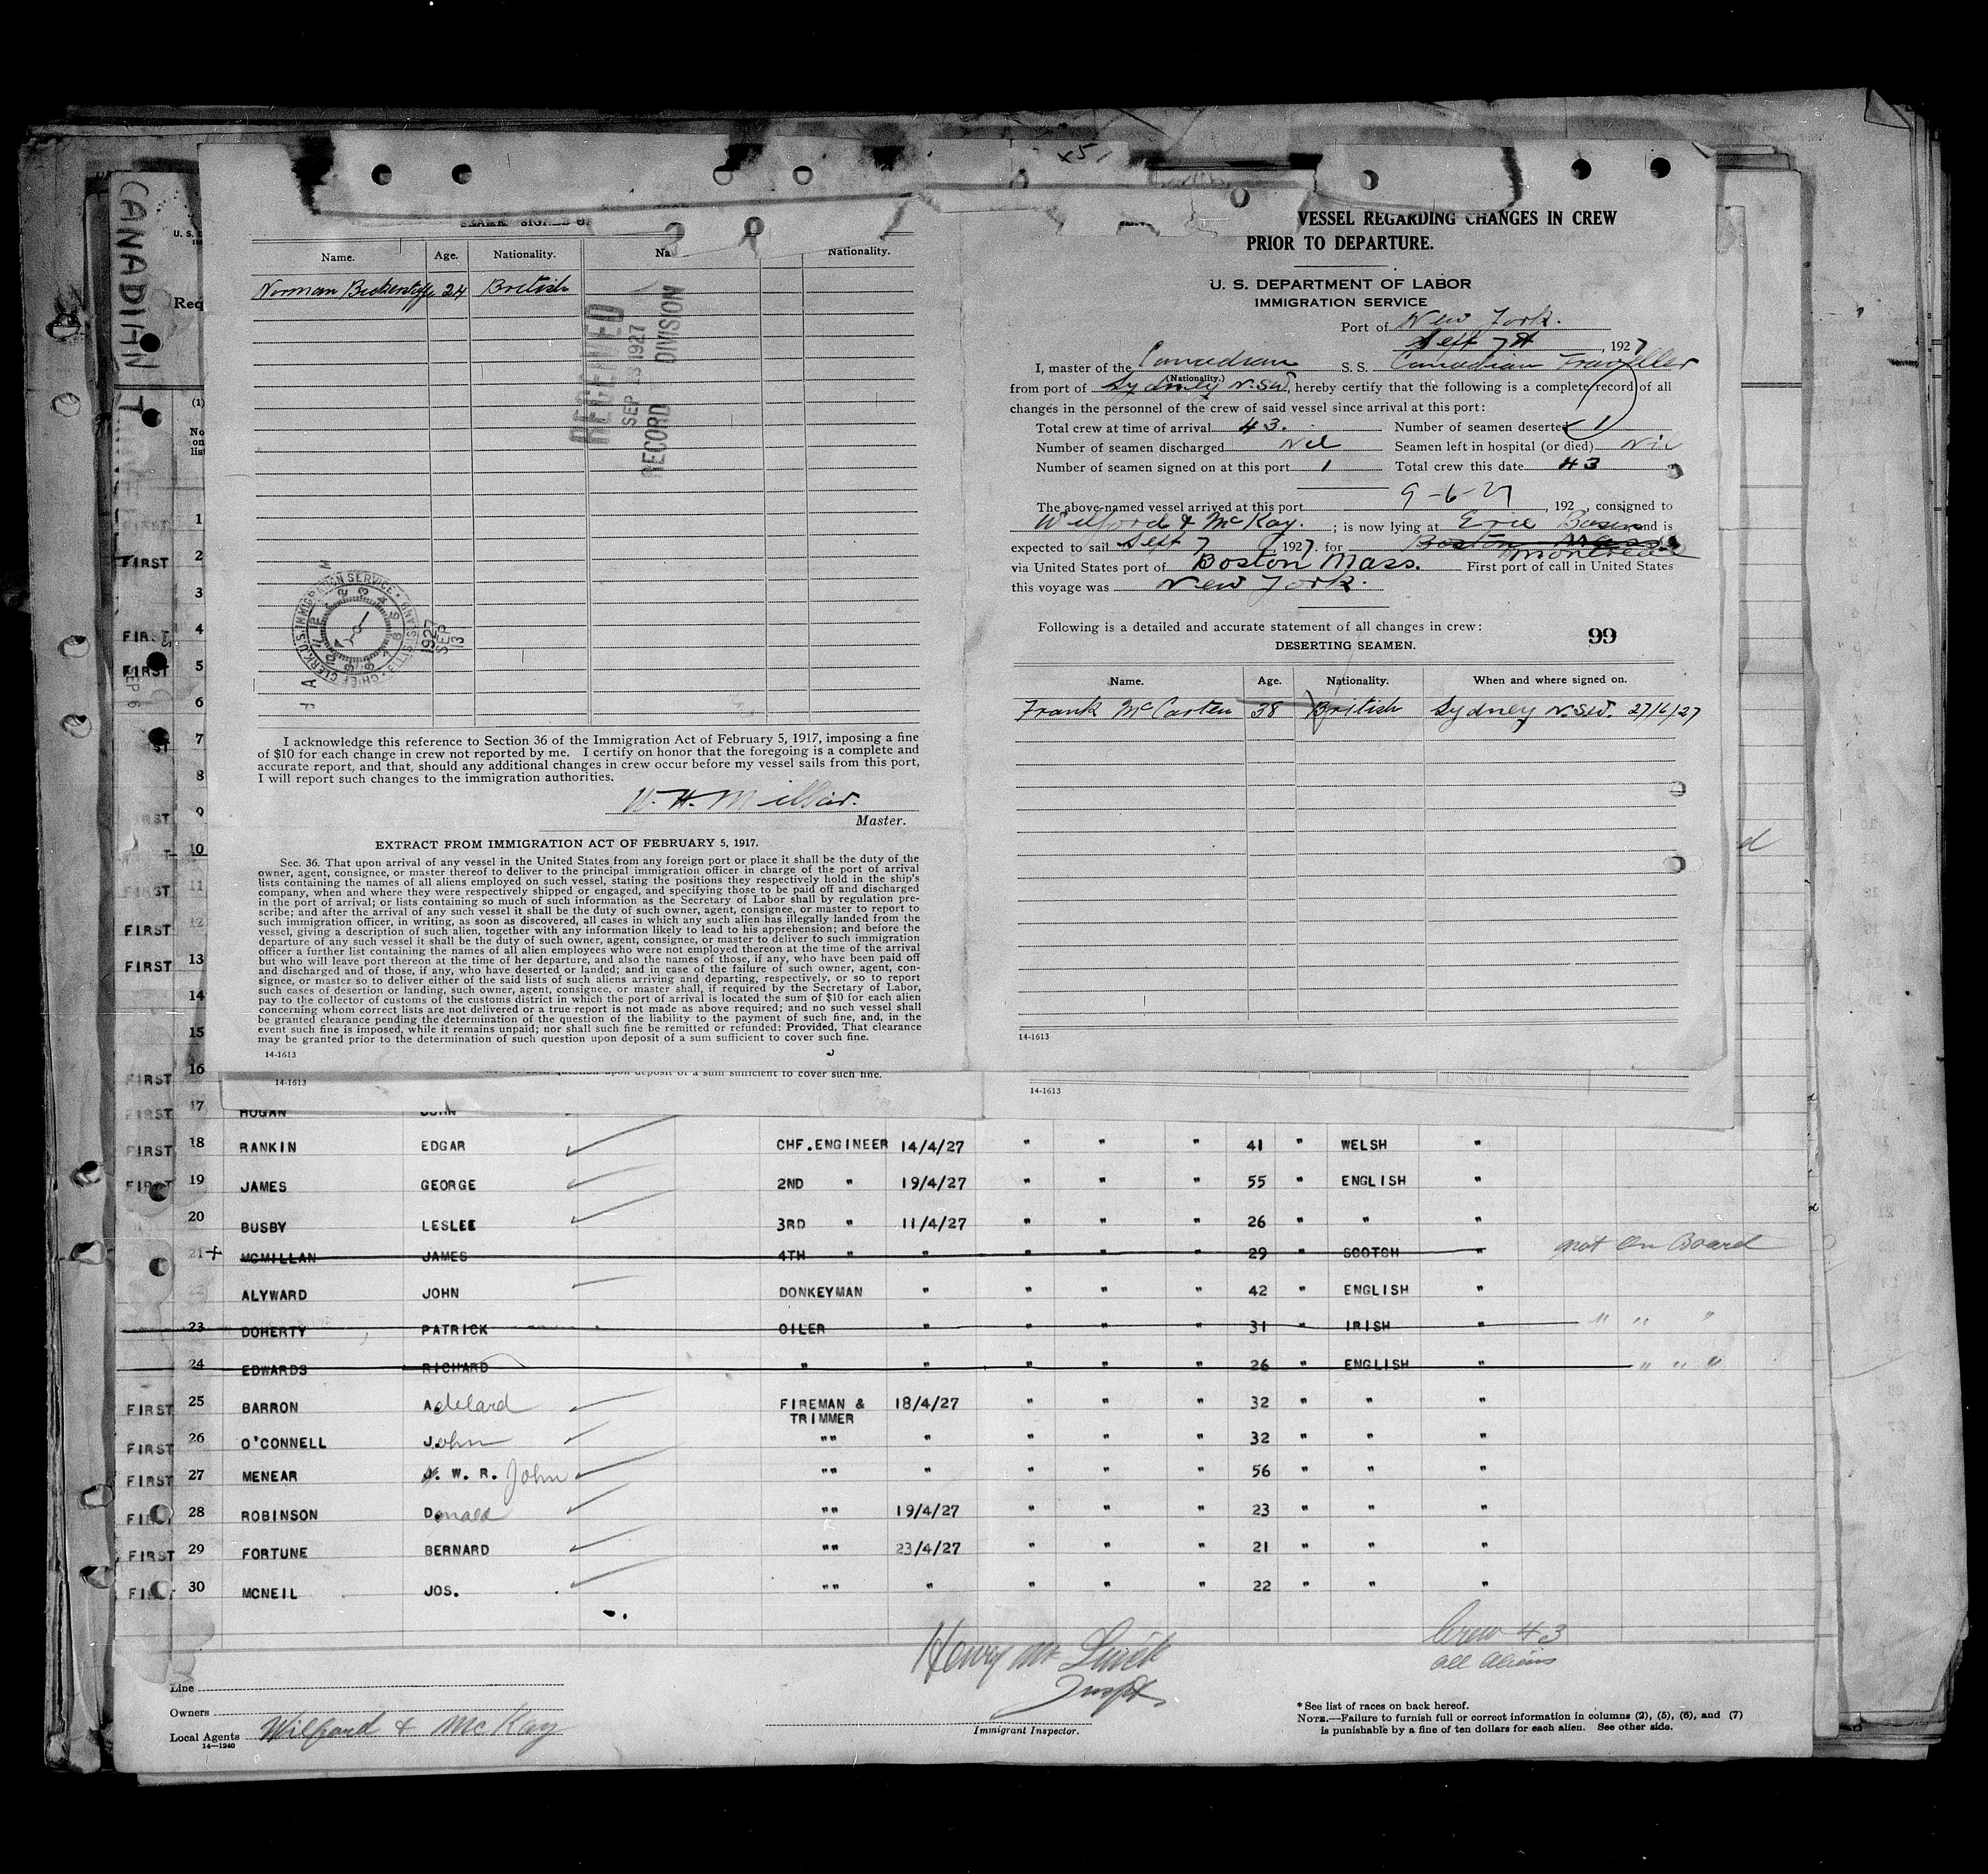 CANADIAN T
U. S. D
Req
(1)
No
on
list
x51
Name. Age. Nationality. Na Nationality.
Norman 24 British
RECEIVED
SEP 13 1927
RECORD DIVISION
CHIEF CLERK, U.S. IMMIGRATION SERVICE
1927
SEP
13
I acknowledge this reference to Section 36 of the Immigration Act of February 5, 1917, imposing a fine
of $10 for each change in crew not reported by me. I certify on honor that the foregoing is a complete and
accurate report, and that, should any additional changes in crew occur before my vessel sails from this port,
I will report such changes to the immigration authorities.
W. H. Millar.
Master.
EXTRACT FROM IMMIGRATION ACT OF FEBRUARY 5, 1917.
Sec. 36. That upon arrival of any vessel in the United States from any foreign port or place it shall be the duty of the
owner, agent, consignee, or master thereof to deliver to the principal immigration officer in charge of the port of arrival
lists containing the names of all aliens employed on such vessel, stating the positions they respectively hold in the ship's
company, when and where they were respectively shipped or engaged, and specifying those to be paid off and discharged
in the port of arrival; or lists containing so much of such information as the Secretary of Labor shall by regulation pre-
scribe; and after the arrival of any such vessel it shall be the duty of such owner, agent, consignee, or master to report to
such immigration officer, in writing, as soon as discovered, all cases in which any such alien has illegally landed from the
vessel, giving a description of such alien, together with any information likely to lead to his apprehension; and before the
departure of any such vessel it shall be the duty of such owner, agent, consignee, or master to deliver to such immigration
officer a further list containing the names of all alien employees who were not employed thereon at the time of the arrival
but who will leave port thereon at the time of her departure, and also the names of those, if any, who have been paid off
and discharged and of those, if any, who have deserted or landed; and in case of the failure of such owner, agent, con-
signee, or master so to deliver either of the said lists of such aliens arriving and departing, respectively, or so to report
such cases of desertion or landing, such owner, agent, consignee, or master shall, if required by the Secretary of Labor,
pay to the collector of customs of the customs district in which the port of arrival is located the sum of $10 for each alien
concerning whom correct lists are not delivered or a true report is not made as above required; and no such vessel shall
be granted clearance pending the determination of the question of the liability to the payment of such fine, and, in the
event such fine is imposed, while it remains unpaid; nor shall such fine be remitted or refunded: Provided, That clearance
may be granted prior to the determination of such question upon deposit of a sum sufficient to cover such fine.
14-1613
VESSEL REGARDING CHANGES IN CREW
PRIOR TO DEPARTURE.
U. S. DEPARTMENT OF LABOR
IMMIGRATION SERVICE
Port of New York.
Sept 7th, 1927
I, master of the Canadian S. S. Canadian Traveller
(Nationality.)
from port of Sydney N.SW, hereby certify that the following is a complete record of all
changes in the personnel of the crew of said vessel since arrival at this port:
Total crew at time of arrival 43. Number of seamen deserted 1
Number of seamen discharged Nil Seamen left in hospital (or died) Nil
Number of seamen signed on at this port 1 Total crew this date 43
The above-named vessel arrived at this port 9-6-27, 192 , consigned to
Wilford & McKay. ; is now lying at Erie Basin and is
expected to sail Sept 7, 1927. for Boston Mass Montreal
via United States port of Boston Mass. First port of call in United States
this voyage was New York.
Following is a detailed and accurate statement of all changes in crew:
99
DESERTING SEAMEN.
Name. Age. Nationality. When and where signed on.
Frank McCarten 38 British Sydney N.SW. 27/6/27
14-1613
upon deposit of a sum sufficient to cover such fine.
14-1613
14-1613
1
FIRST 2
3
FIRST 4
FIRST 5
6
7
8
9
10
FIRST 11
FIRST 12
FIRST 13
14
15
FIRST 16
FIRST 17 HOGAN JOHN
FIRST 18 RANKIN EDGAR CHF.ENGINEER 14/4/27 " " " 41 " WELSH "
FIRST 19 JAMES GEORGE 2ND " 19/4/27 " " " 55 " ENGLISH "
20 BUSBY LESLEE 3RD " 11/4/27 " " " 26 " " "
21 + MCMILLAN JAMES 4TH " " " " " 29 " SCOTCH " not On Board
ALYWARD JOHN DONKEYMAN " " " " 42 " ENGLISH "
23 DOHERTY PATRICK OILER " " " " 31 " IRISH " " " "
24 EDWARDS RICHARD " " " " " 26 " ENGLISH " " " "
FIRST 25 BARRON Adelard FIREMAN & TRIMMER 18/4/27 " " " 32 " " "
FIRST 26 O'CONNELL John "" " " " " 32 " " "
FIRST 27 MENEAR J. W. R. John "" " " " " 56 " " "
FIRST 28 ROBINSON Donald "" 19/4/27 " " " 23 " " "
FIRST 29 FORTUNE BERNARD "" 23/4/27 " " " 21 " " "
FIRST 30 MCNEIL JOS. "" " " " " 22 " " "
Crew 43
all aliens
Henry Mc
Inspt
Line
Owners
Local Agents Wilford & McKay
14-1240
Immigrant Inspector.
* See list of races on back hereof.
NOTE.—Failure to furnish full or correct information in columns (2), (5), (6), and (7)
is punishable by a fine of ten dollars for each alien. See other side.